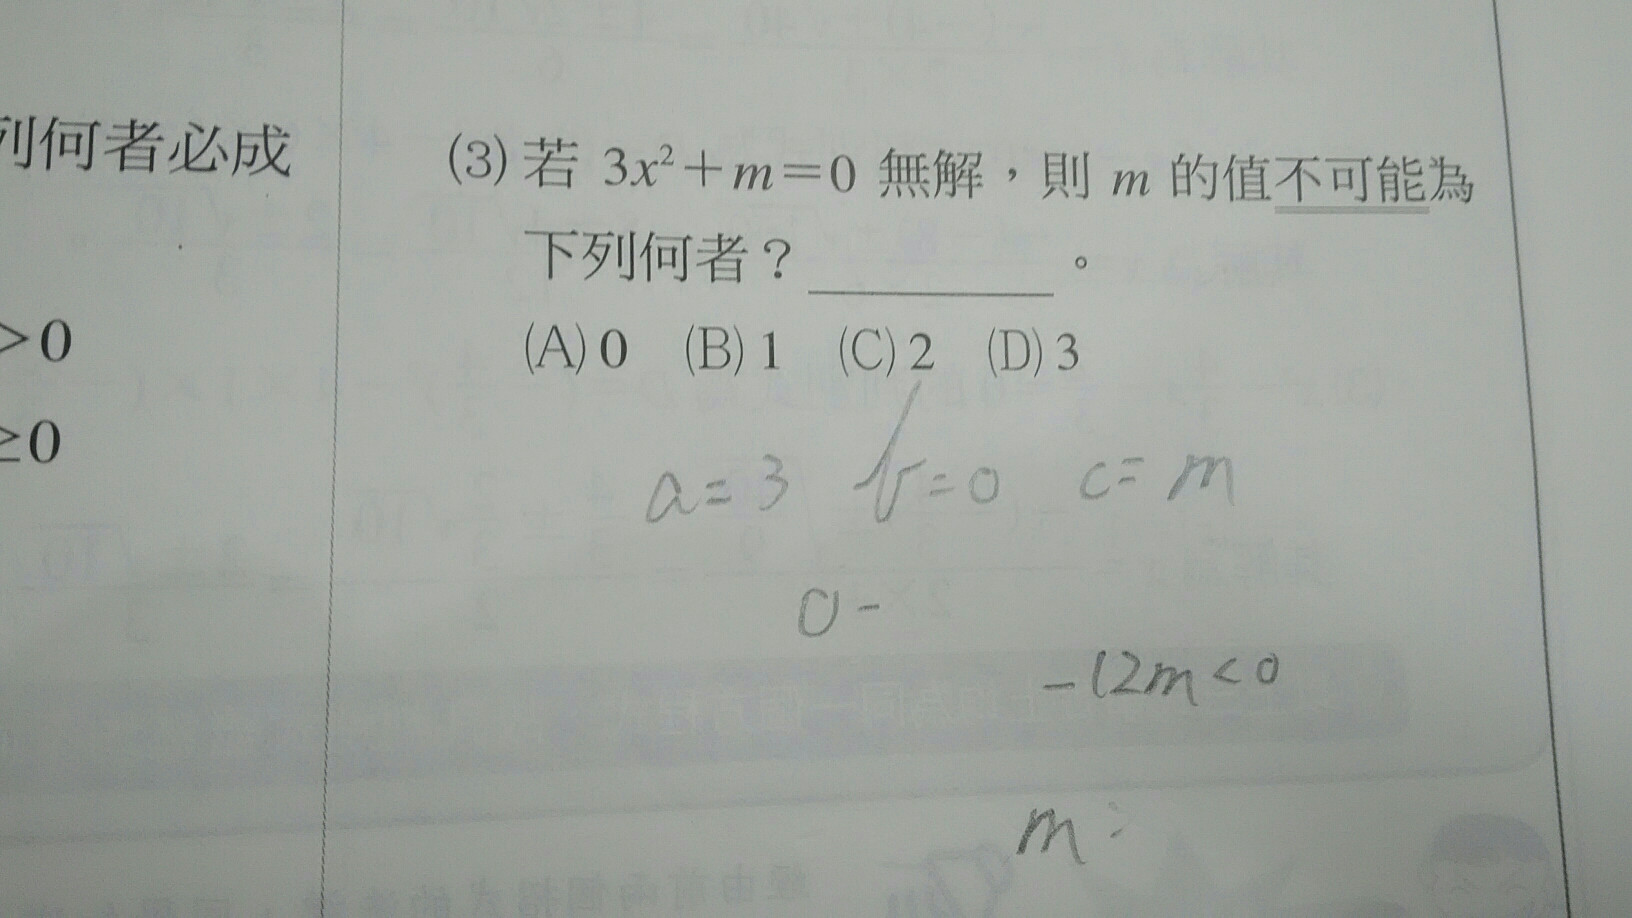 列何者必成
>0
≥0
(3) 若 3x²+m=0 無解，則 m 的值不可能為
下列何者？________。
(A) 0 (B) 1 (C) 2 (D) 3
a=3 b=0 c=m
0-
-12m<0
m